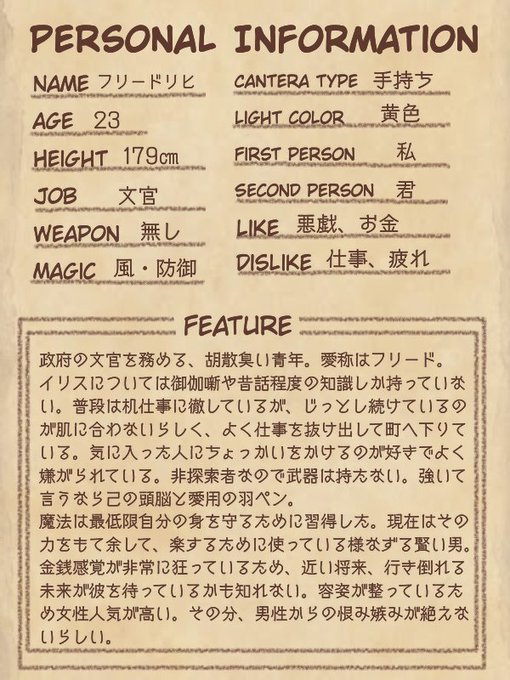 PERSONAL INFORMATION
NAME フリードリヒ
AGE 23
HEIGHT 179cm
JOB 文官
WEAPON 無し
MAGIC 風・防御
CANTERA TYPE 手持ち
LIGHT COLOR 黄色
FIRST PERSON 私
SECOND PERSON 君
LIKE 悪戯、お金
DISLIKE 仕事、疲れ
FEATURE
政府の文官を務める、胡散臭い青年。愛称はフリード。
イリスについては御伽噺や昔話程度の知識しか持っていな
い。普段は机仕事に徹しているが、じっとし続けているの
が肌に合わないらしく、よく仕事を抜け出して町へ下りて
いる。気に入った人にちょっかいをかけるのが好きでよく
嫌がられている。非探索者なので武器は持たない。強いて
言うなら己の頭脳と愛用の羽ペン。
魔法は最低限自分の身を守るために習得した。現在はその
力をもて余して、楽するために使っている様なずる賢い男。
金銭感覚が非常に狂っているため、近い将来、行き倒れる
未来が彼を待っているかも知れない。容姿が整っているた
め女性人気が高い。その分、男性からの恨み嫉みが絶えな
いらしい。